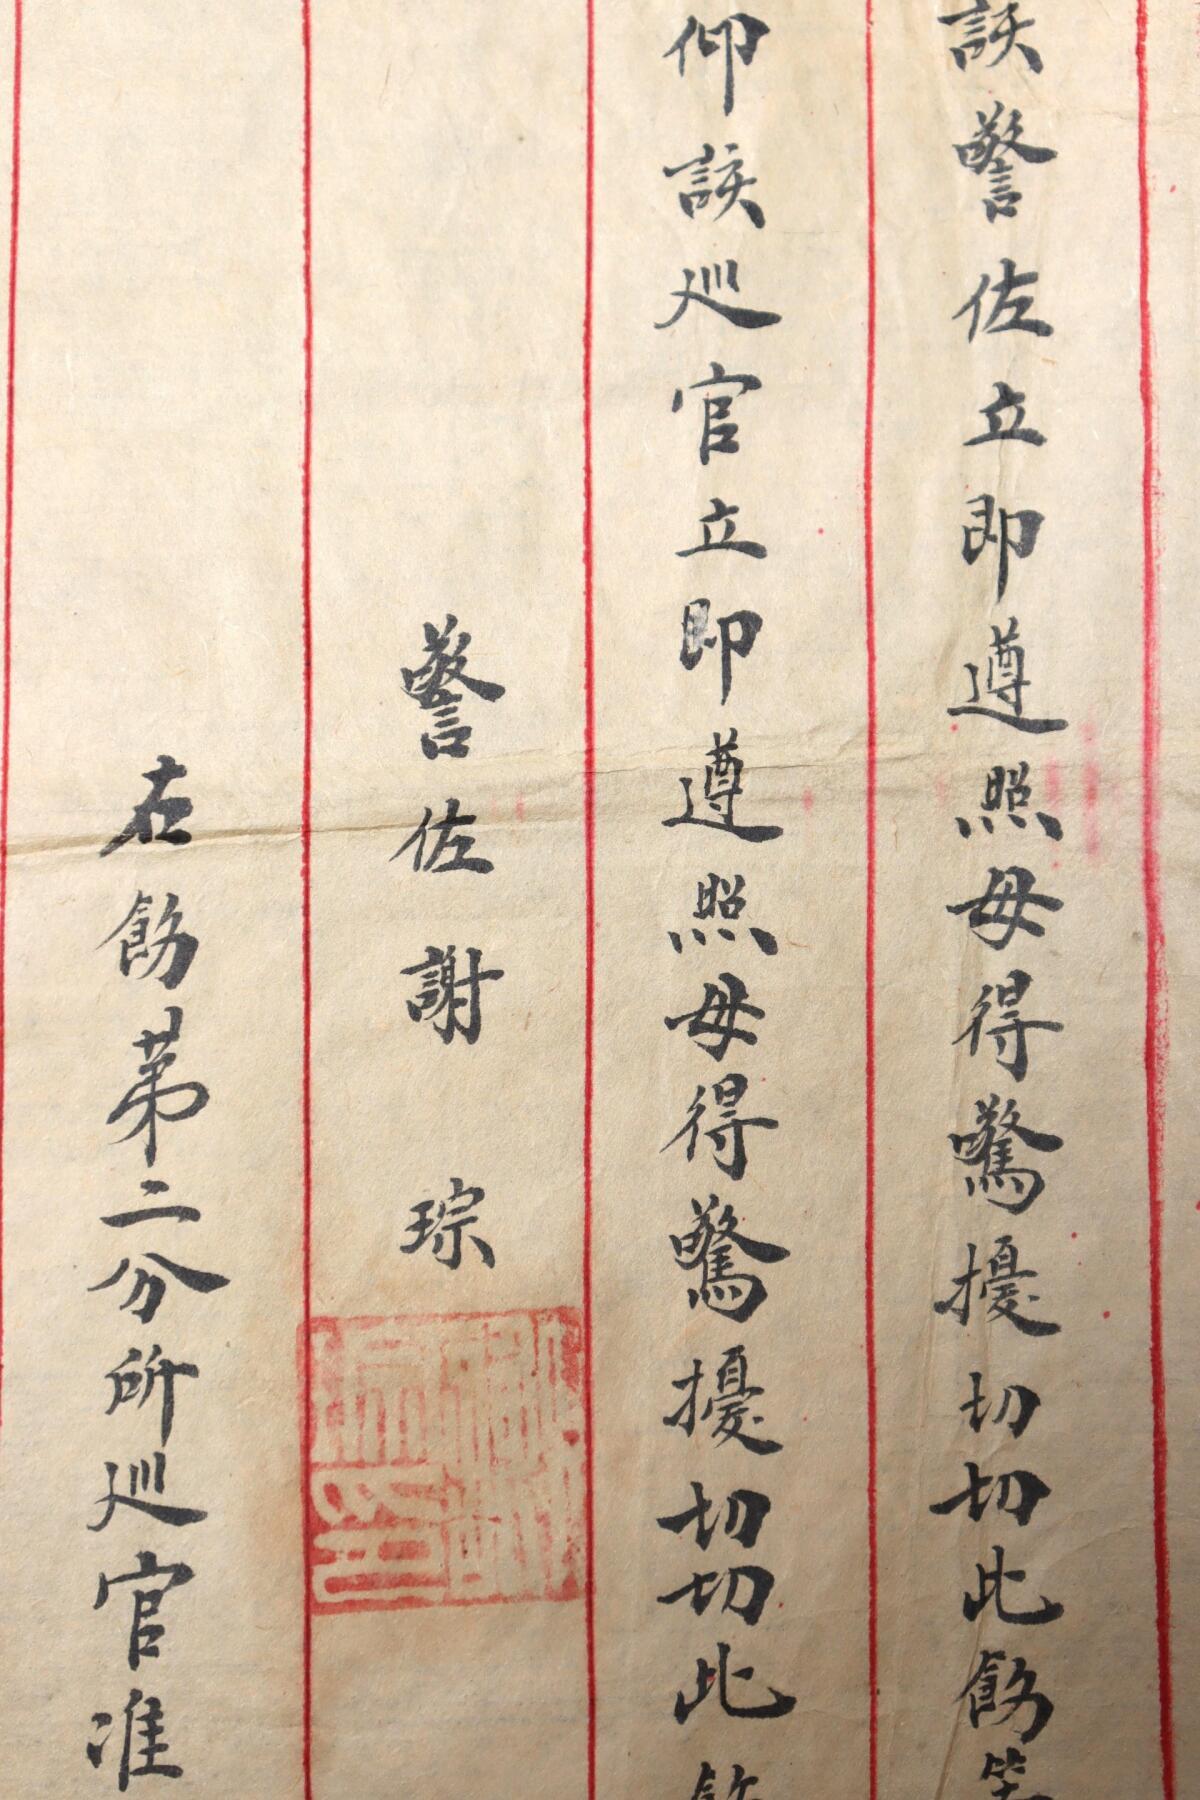 該警佐立即遵照毋得驚擾切切此飭等
仰該巡官立即遵照毋得驚擾切切此飭
警佐謝琮
右飭第二分所巡官准